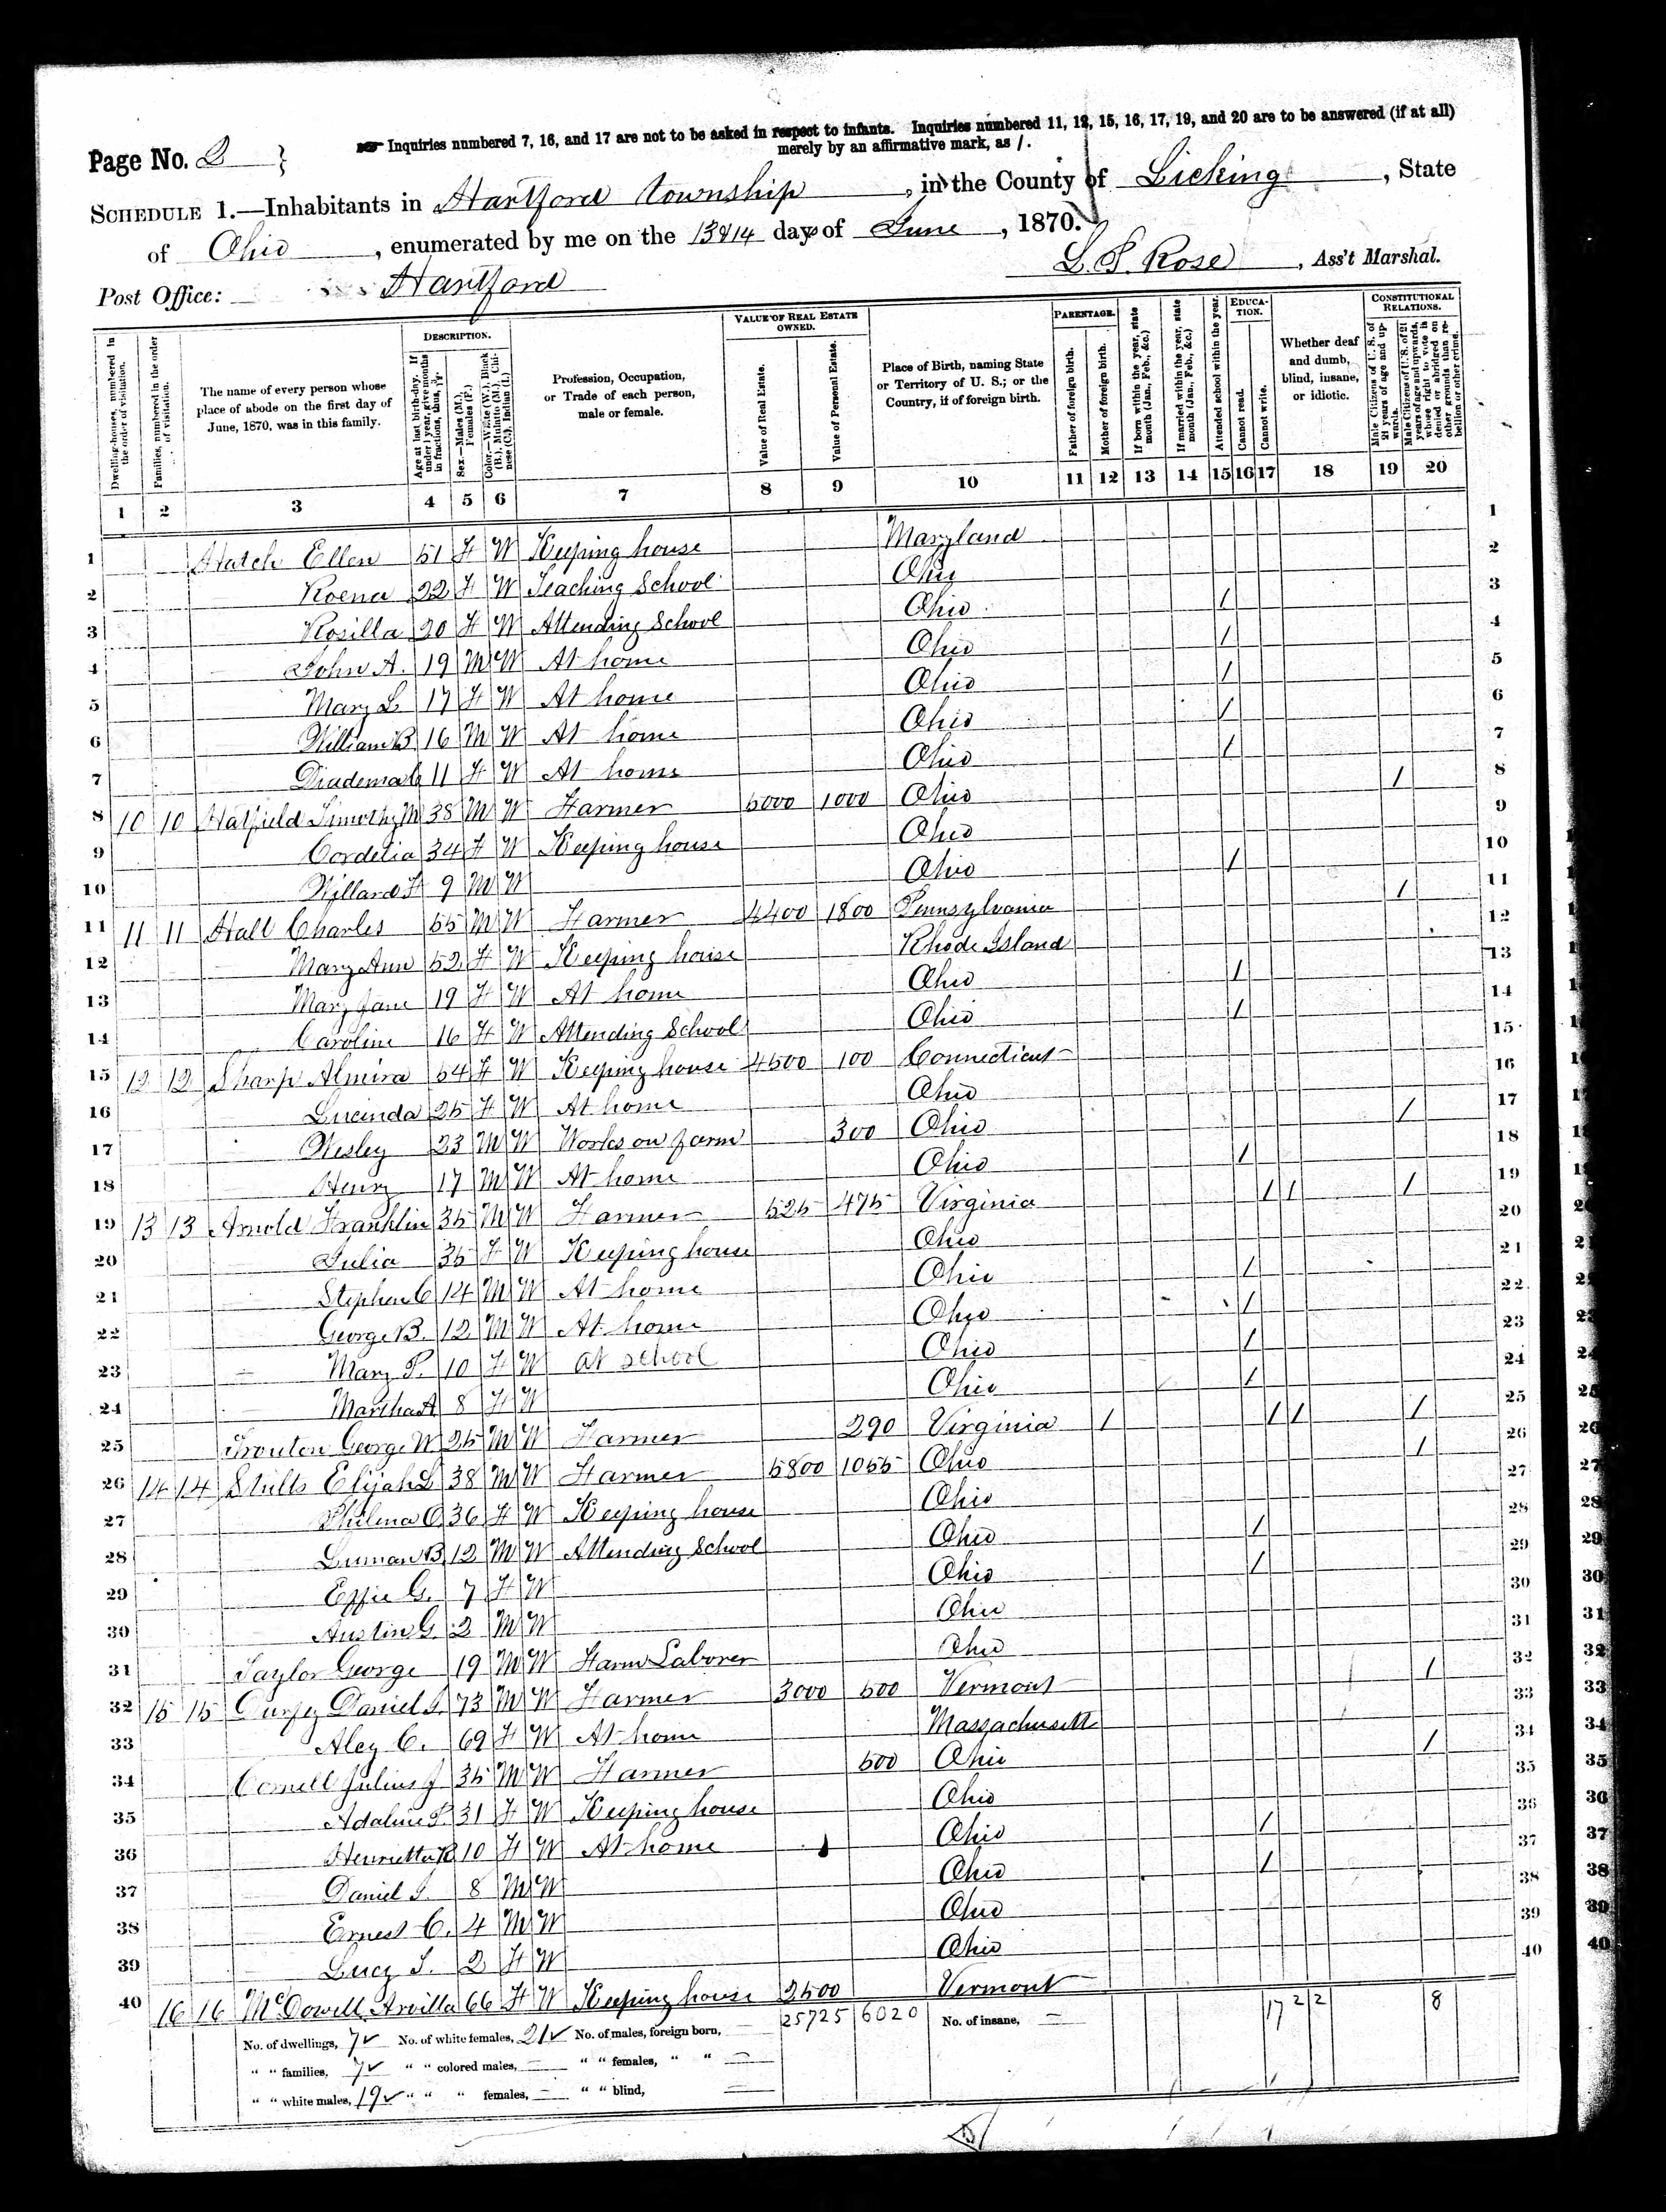 Inquiries numbered 7, 16, and 17 are not to be asked in respect to infants. Inquiries numbered 11, 12, 15, 16, 17, 19, and 20 are to be answered (if at all)
merely by an affirmative mark, as /.
Page No. 2
SCHEDULE 1.—Inhabitants in Hartford township, in the County of Licking, State
of Ohio, enumerated by me on the 13&14 days of June, 1870.
Post Office: Hartford L. S. Rose, Ass't Marshal.
Dwelling-houses, numbered in the order of visitation.
Families, numbered in the order of visitation.
The name of every person whose place of abode on the first day of June, 1870, was in this family.
DESCRIPTION.
Age at last birth-day. If under 1 year, give months in fractions, thus,
Sex.—Males (M.), Females (F.)
Color.—White (W.), Black (B.), Mulatto (M.), Chinese (C.), Indian (I.)
Profession, Occupation, or Trade of each person, male or female.
VALUE OF REAL ESTATE OWNED.
Value of Real Estate.
Value of Personal Estate.
Place of Birth, naming State or Territory of U. S.; or the Country, if of foreign birth.
PARENTAGE.
Father of foreign birth.
Mother of foreign birth.
If born within the year, state month (Jan., Feb., &c.)
If married within the year, state month (Jan., Feb., &c.)
Attended school within the year.
EDUCATION.
Cannot read.
Cannot write.
Whether deaf and dumb, blind, insane, or idiotic.
CONSTITUTIONAL RELATIONS.
Male Citizens of U. S. of 21 years of age and upwards.
Male Citizens of U. S. of 21 years of age and upwards, whose right to vote is denied or abridged on other grounds than rebellion or other crime.
1 2 3 4 5 6 7 8 9 10 11 12 13 14 15 16 17 18 19 20
1 Hatch Ellen 51 F W Keeping house Maryland 1
2 Roena 22 F W Teaching School Ohio 2
3 Rosilla 20 F W Attending School Ohio / 3
4 John A. 19 M W At home Ohio / 4
5 Mary L 17 F W At home Ohio / 5
6 William B 16 M W At home Ohio / 6
7 Diadema C 11 F W At home Ohio / 7
8 10 10 Hatfield Timothy M 38 M W Farmer 5000 1000 Ohio / 8
9 Cordelia 34 F W Keeping house Ohio 9
10 Willard F 9 M W Ohio / 10
11 11 11 Hall Charles 55 M W Farmer 4400 1800 Pennsylvania / 11
12 Mary Ann 52 F W Keeping house Rhode Island 12
13 Mary Jane 19 F W At home Ohio / 13
14 Caroline 16 F W Attending School Ohio / 14
15 12 12 Sharp Almira 54 F W Keeping house 4500 100 Connecticut 15
16 Lucinda 25 F W At home Ohio 16
17 Wesley 23 M W Works on farm 300 Ohio / 17
18 Henry 17 M W At home Ohio / 18
19 13 13 Arnold Franklin 35 M W Farmer 525 475 Virginia / / / 19
20 Julia 35 F W Keeping house Ohio 20
21 Stephen C 14 M W At home Ohio / 21
22 George B. 12 M W At home Ohio / 22
23 Mary P. 10 F W at school Ohio / 23
24 Martha A 8 F W Ohio / 24
25 Trouton George W 25 M W Farmer 290 Virginia / / / / 25
26 14 14 Stults Elijah L 38 M W Farmer 5800 1055 Ohio / 26
27 Philena O 36 F W Keeping house Ohio 27
28 Luman B 12 M W Attending School Ohio / 28
29 Effie G. 7 F W Ohio / 29
30 Austin G. 2 M W Ohio 30
31 Taylor George 19 M W Farm Laborer Ohio 31
32 15 15 Durfey Daniel S. 73 M W Farmer 3000 500 Vermont / 32
33 Aley C. 69 F W At home Massachusetts 33
34 Cornell Julius J 35 M W Farmer 500 Ohio / 34
35 Adaline L. 31 F W Keeping house Ohio 35
36 Henrietta R 10 F W At home Ohio / 36
37 Daniel J. 8 M W Ohio / 37
38 Ernest C. 4 M W Ohio 38
39 Lucy S. 2 F W Ohio 39
40 16 16 McDowell Arvilla 66 F W Keeping house 2500 Vermont 40
No. of dwellings, 7 No. of white females, 21 No. of males, foreign born, 25725 6020 No. of insane, 17 2 2 8
" " families, 7 " " colored males, " " females, " "
" " white males, 19 " " " females, " " blind,